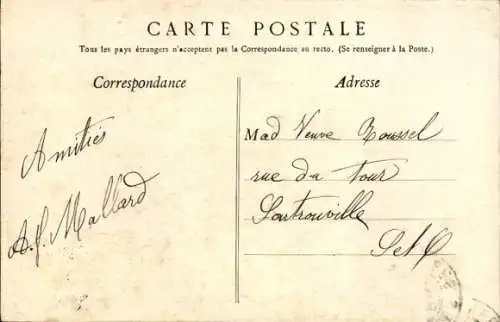 CARTE POSTALE
Tous les pays étrangers n'acceptent pas la Correspondance au recto. (Se renseigner à la Poste.)
Correspondance
Adresse
Amitiés
A. J. Mallard
Mad Veuve Roussel
rue du tour
Sartrouville
S et O